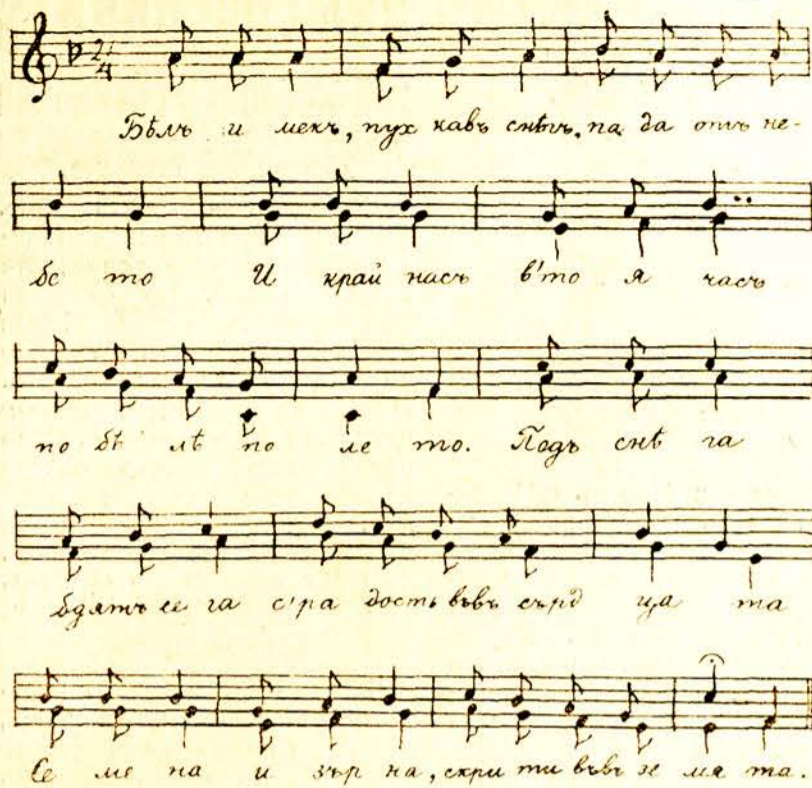 2/4
Бѣлъ и мекъ, пух кавъ снѣгъ, па да отъ не-
бе то И край насъ в'то я часъ
по бѣ лѣ по ле то. Подъ снѣ га
бдятъ се га с'ра дость въвъ сърд ца та
Се ме на и зър на, скри ти въвъ зе мя та.